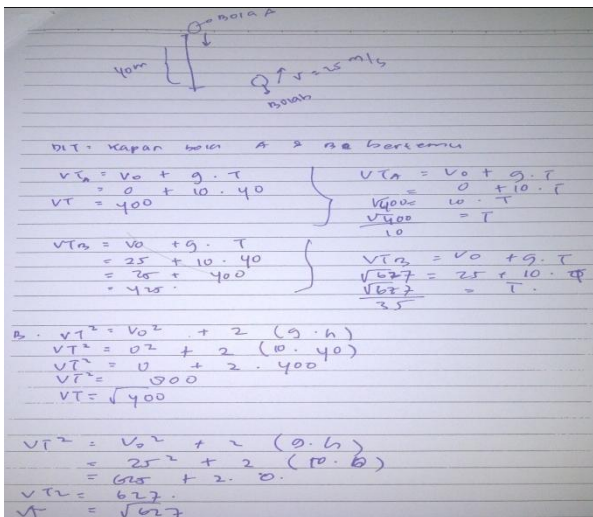 Bola A
40m
v = 25 m/s
Bolab
DIT = Kapan bola A & Ba bertemu
VTA = Vo + g. T
= 0 + 10 . 40
VT = 400
VTA = Vo + g. T
= 0 + 10 . T
√400 = 10 . T
√400 = T
10
VTB = Vo + g. T
= 25 + 10 . 40
= 25 + 400
= 425.
VTB = Vo + g. T
√627 = 25 + 10 .
√637 = T.
35
B. VT² = Vo² + 2 (g. h)
VT² = 0² + 2 (10. 40)
VT² = 0 + 2 . 400
VT² = 800
VT = √400
VT² = Vo² + 2 (g. h)
= 25² + 2 (10. 0)
= 625 + 2. 0.
VT2 = 627.
= √627